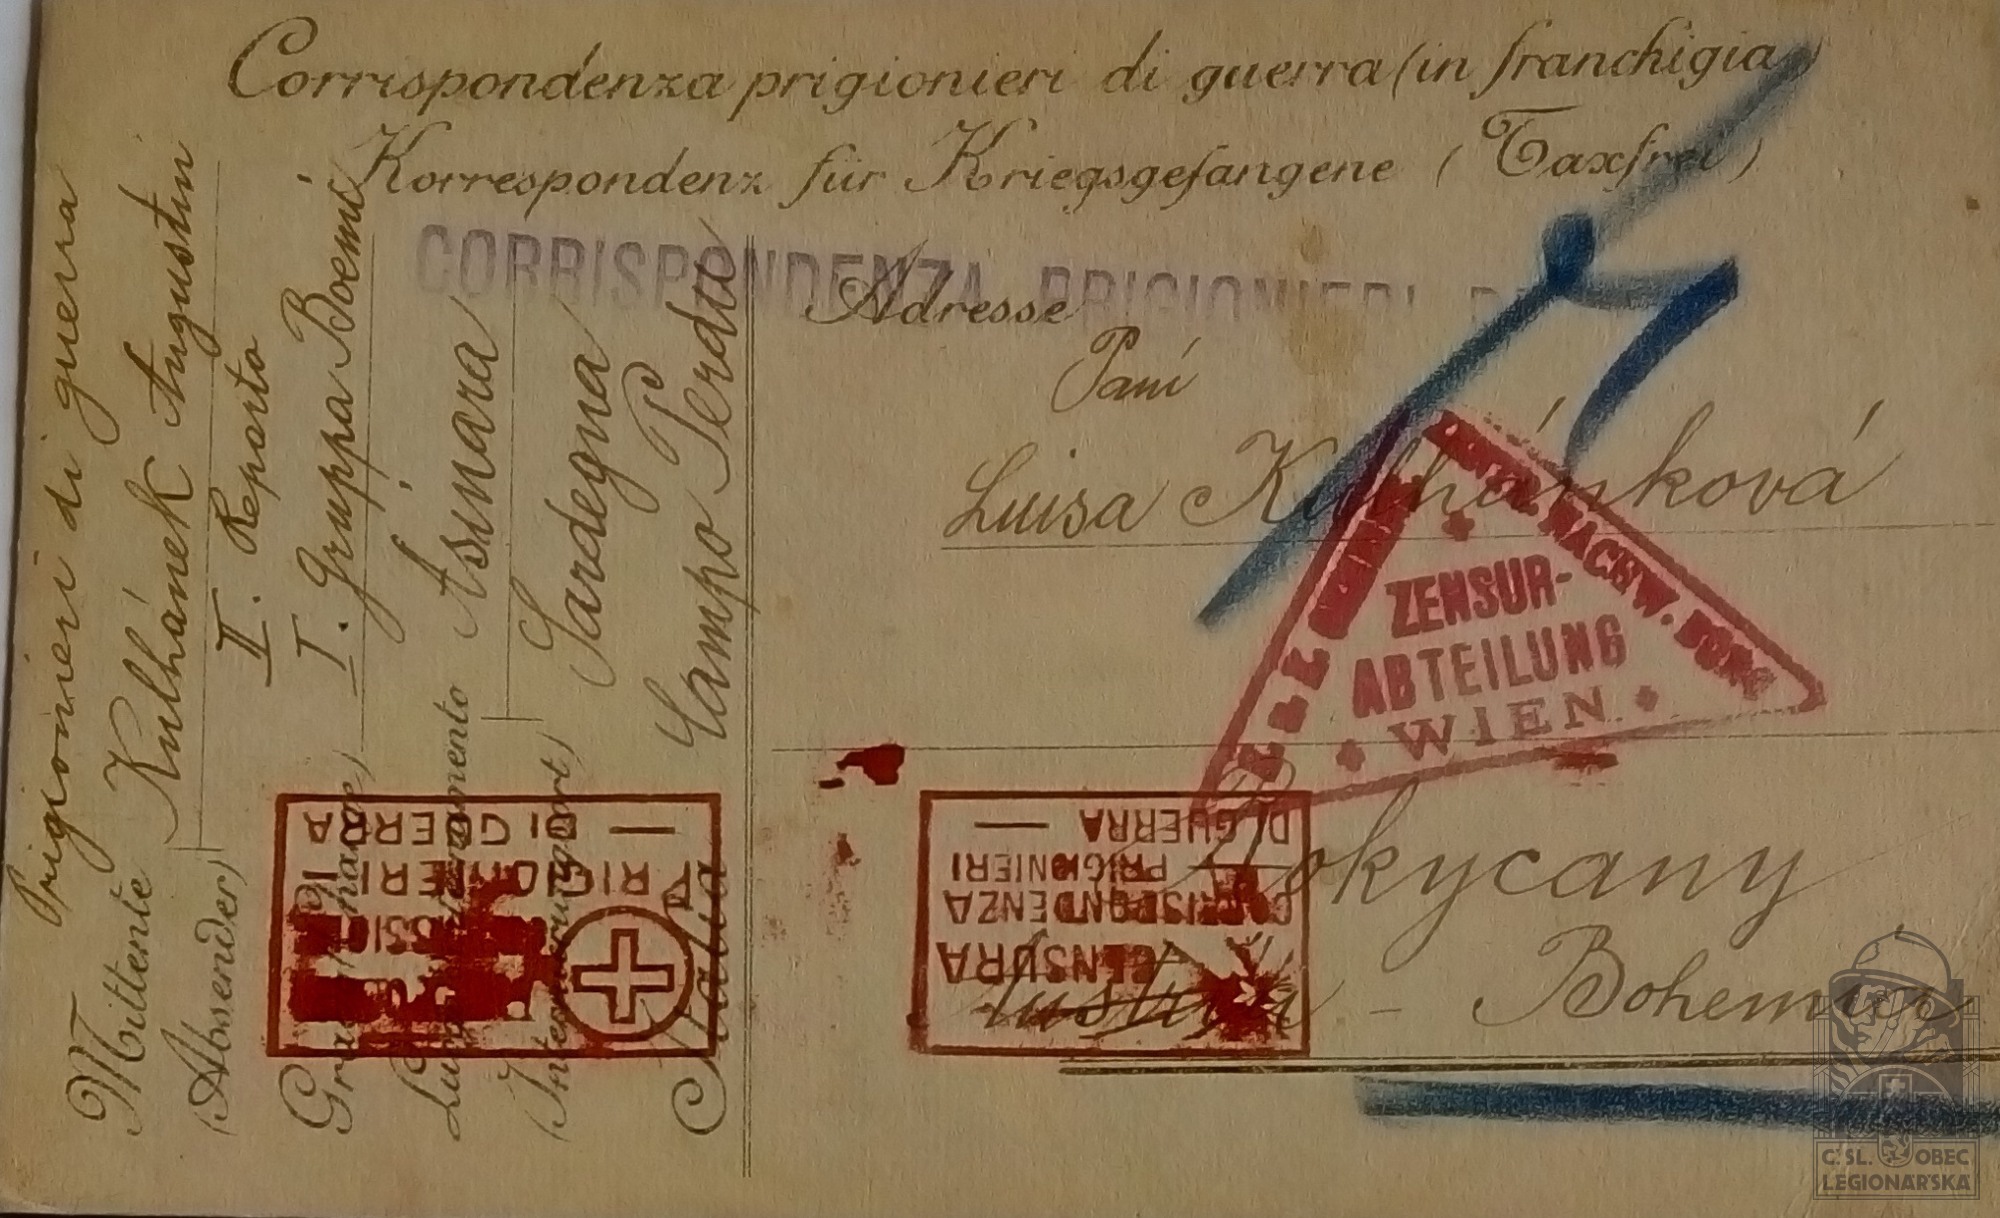 Corrispondenza prigionieri di guerra (in franchigia)
Korrespondenz für Kriegsgefangene (Taxfrei)
CORRISPONDENZA PRIGIONIERI
Adresse
Paní
Luisa Kulhánková
Rokycany
Austria - Bohemia
Prigionieri di guerra
Mittente Kulhánek Augustin
(Absender)
II. Reparto
I. Gruppa Boemi
Grado (Charge)
Asinara
Internamento
Sardegna
(Internierungsort)
Campo Perdu
Italia
ZENSUR-
ABTEILUNG
WIEN
NACHW.
PRIGIONIERI
DI GUERRA
CENSURA
CORRISPONDENZA
PRIGIONIERI
DI GUERRA
Č.SL. OBEC
LEGIONÁŘSKÁ